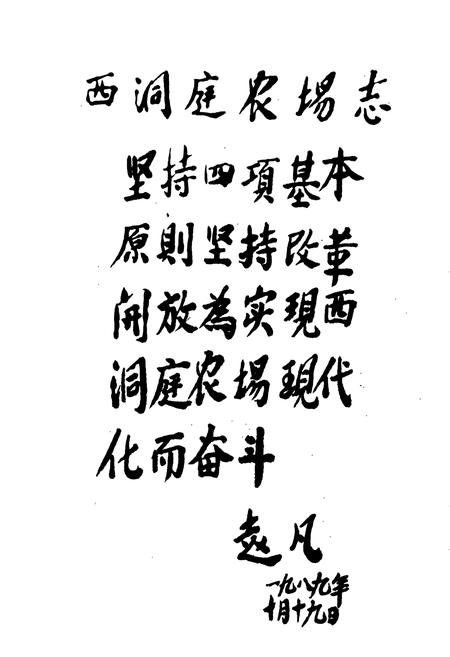 西洞庭农场志
坚持四項基本
原則坚持改革
開放為实現西
洞庭农場現代
化而奋斗
赵凡
一九八九年
十月十九日